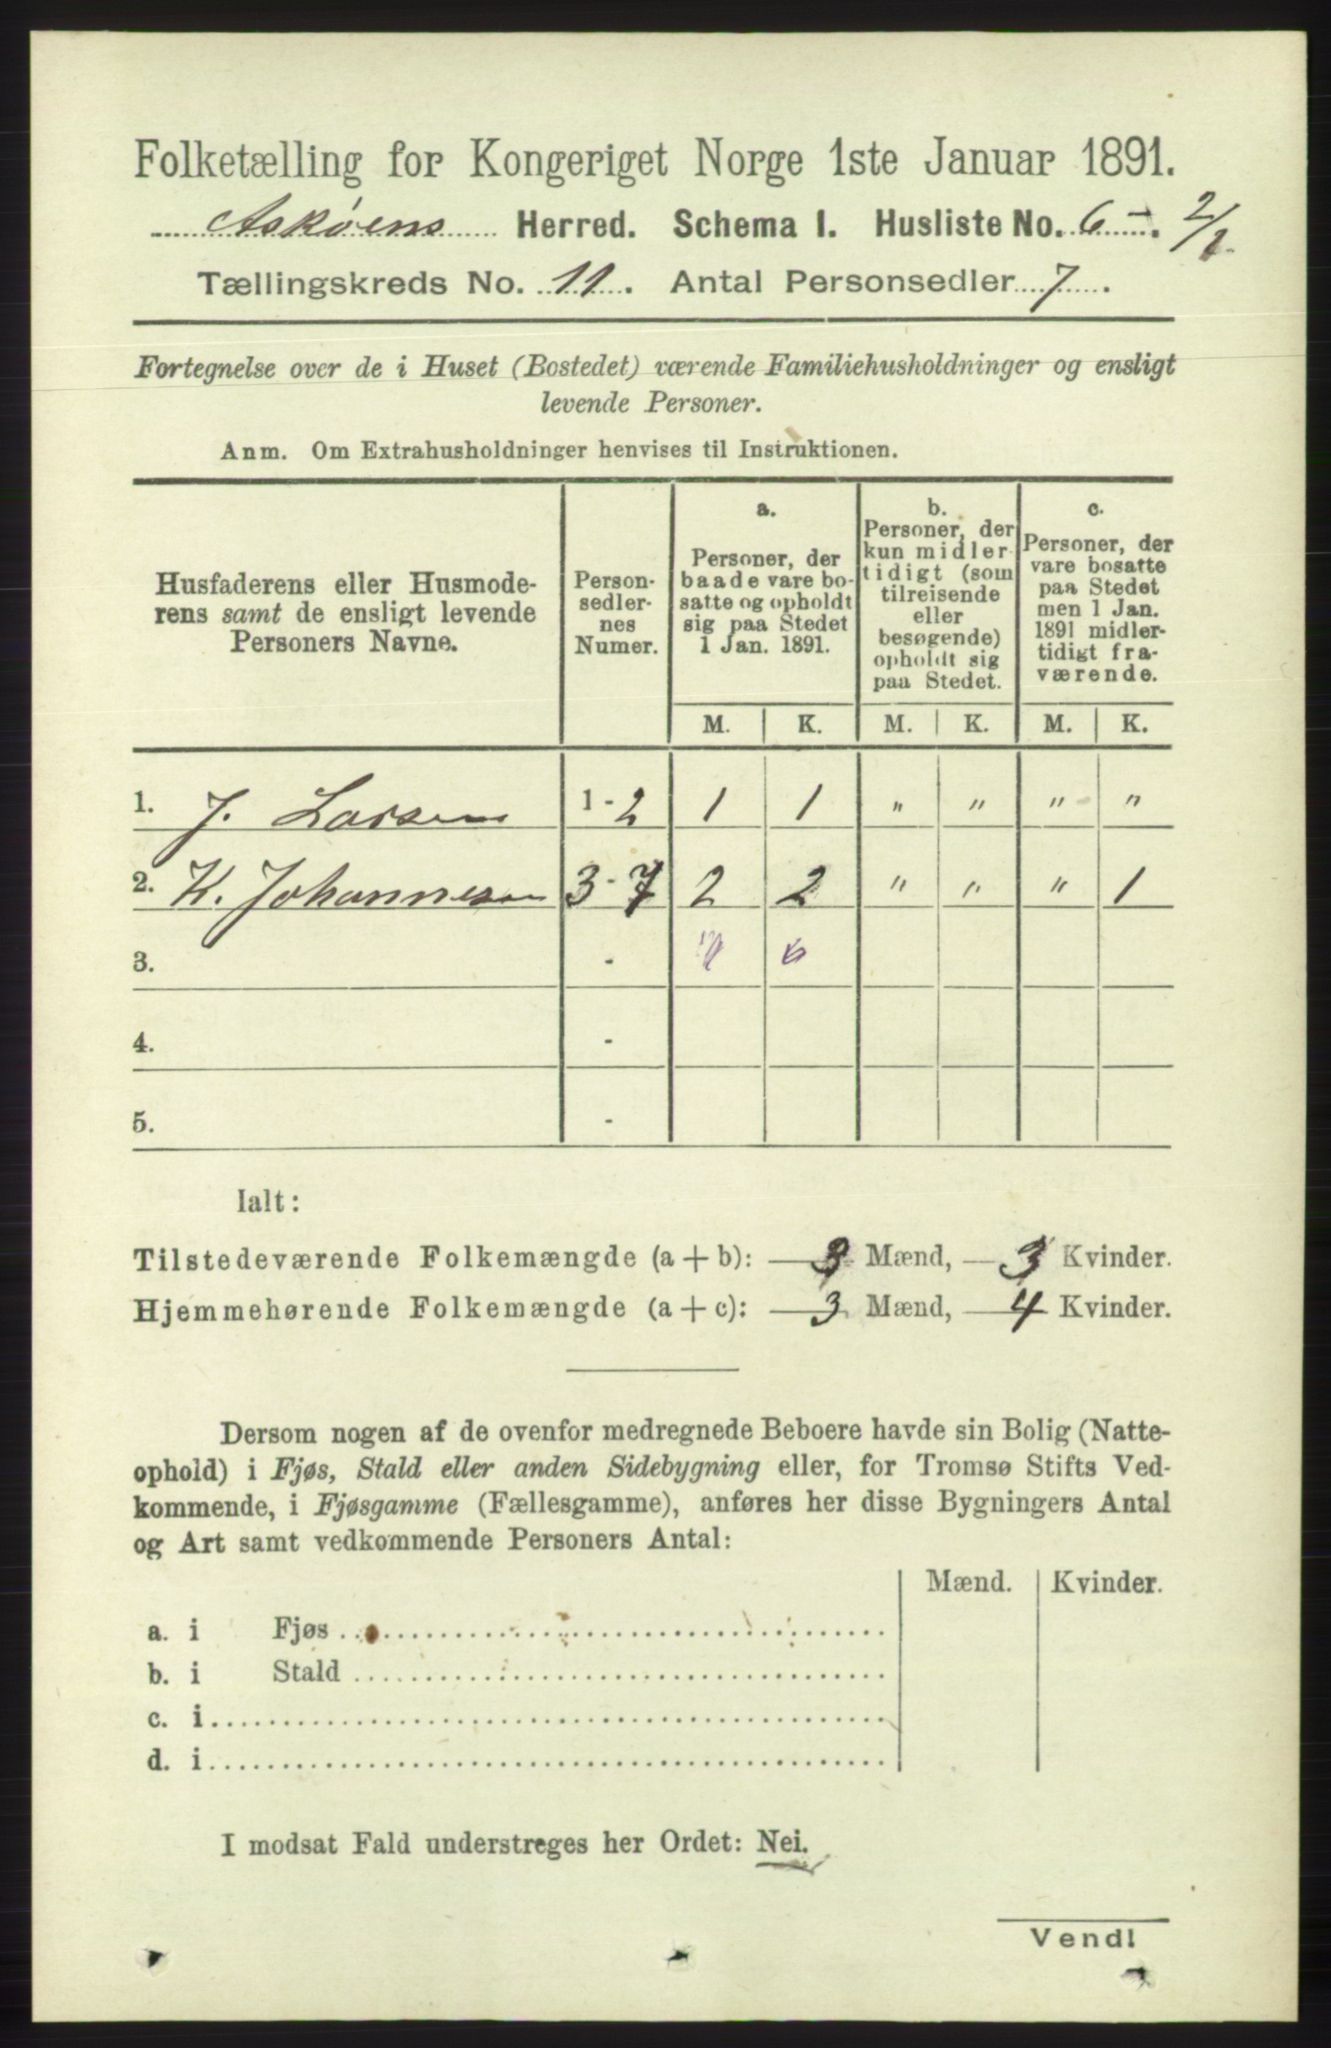 Folketælling for Kongeriget Norge 1ste Januar 1891.
Askøens Herred. Schema I. Husliste No. 6 - . 2/1
Tællingskreds No. 11. Antal Personsedler 7.
Fortegnelse over de i Huset (Bostedet) værende Familiehusholdninger og ensligt
levende Personer.
Anm. Om Extrahusholdninger henvises til Instruktionen.
Husfaderens eller Husmode-
rens samt de ensligt levende
Personers Navne.
Person-
sedler-
nes
Numer.
a.
Personer, der
baade vare bo-
satte og opholdt
sig paa Stedet
1 Jan. 1891.
b.
Personer, der
kun midler-
tidigt (som
tilreisende
eller
besøgende)
opholdt sig
paa Stedet.
c.
Personer, der
vare bosatte
paa Stedet
men 1 Jan.
1891 midler-
tidigt fra-
værende.
M. K. M. K. M. K.
1. J. Larsen 1 - 2 1 1 " " " "
2. K. Johannesen 3 - 7 2 2 " " " 1
3. -
4. -
5. -
Ialt:
Tilstedeværende Folkemængde (a + b): 3 Mænd, 3 Kvinder.
Hjemmehørende Folkemængde (a + c): 3 Mænd, 4 Kvinder.
Dersom nogen af de ovenfor medregnede Beboere havde sin Bolig (Natte-
ophold) i Fjøs, Stald eller anden Sidebygning eller, for Tromsø Stifts Ved-
kommende, i Fjøsgamme (Fællesgamme), anføres her disse Bygningers Antal
og Art samt vedkommende Personers Antal:
Mænd. Kvinder.
a. i Fjøs
b. i Stald
c. i
d. i
I modsat Fald understreges her Ordet: Nei.
Vend!